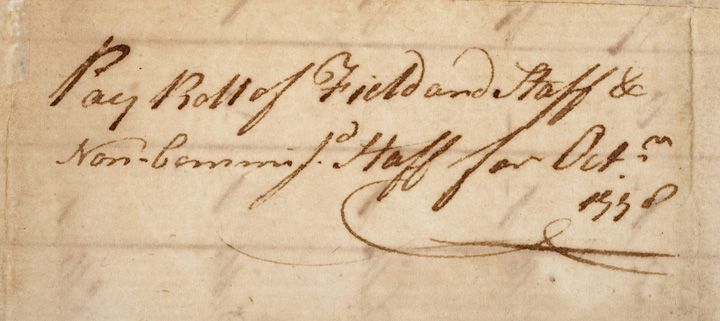 Pay Roll of Field and Staff &
Non-Commis.d Staff for Oct.r
1778